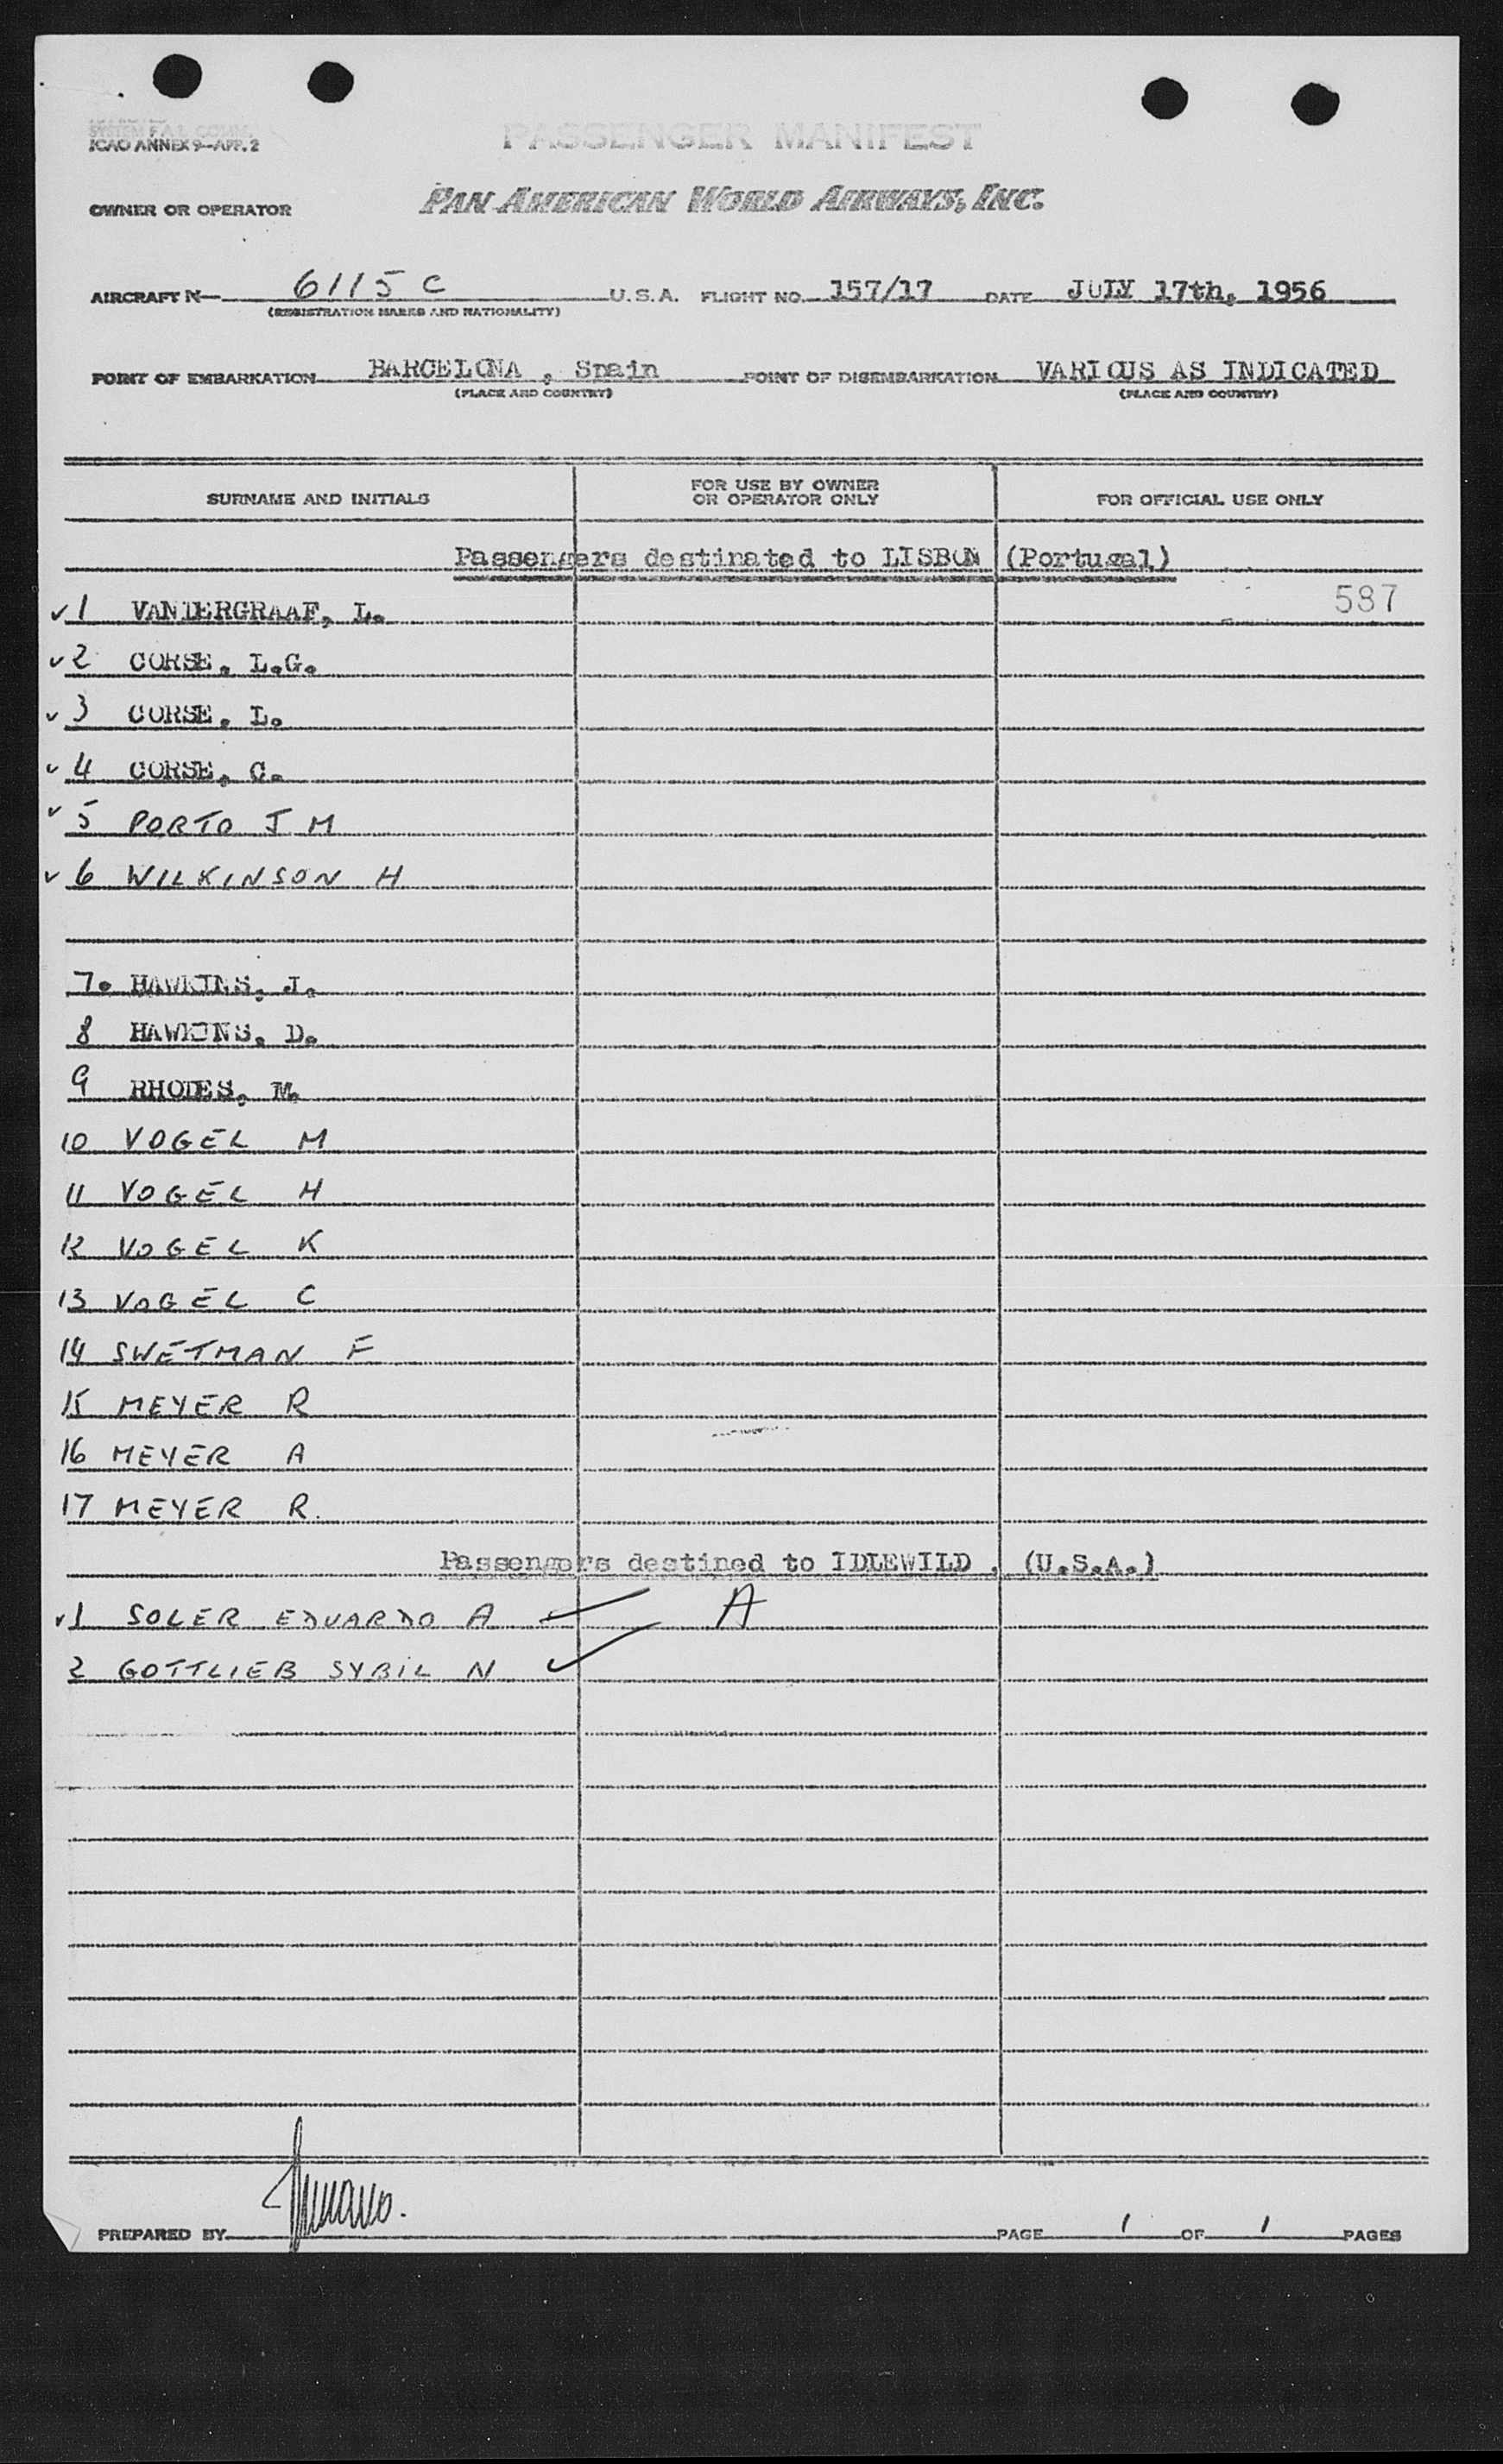 SYSTEM F.A.L. COMM.
ICAO ANNEX 9—APP. 2
PASSENGER MANIFEST
OWNER OR OPERATOR PAN AMERICAN WORLD AIRWAYS, INC.
AIRCRAFT N— 6115 C U.S.A. FLIGHT NO. 157/17 DATE JULY 17th, 1956
(REGISTRATION MARKS AND NATIONALITY)
POINT OF EMBARKATION BARCELONA , Spain POINT OF DISEMBARKATION VARIOUS AS INDICATED
(PLACE AND COUNTRY) (PLACE AND COUNTRY)
SURNAME AND INITIALS FOR USE BY OWNER OR OPERATOR ONLY FOR OFFICIAL USE ONLY
Passengers destinated to LISBON (Portugal)
587
✓ 1 VANDERGRAAF, L.
✓ 2 CORSE, L.G.
✓ 3 CORSE, L.
✓ 4 CORSE, C.
✓ 5 PORTO J M
✓ 6 WILKINSON H
7. HAWKINS, J.
8 HAWKINS, D.
9 RHODES, M.
10 VOGEL M
11 VOGEL H
12 VOGEL K
13 VOGEL C
14 SWETMAN F
15 MEYER R
16 MEYER A
17 MEYER R.
Passengers destined to IDLEWILD , (U.S.A.)
✓ 1 SOLER EDUARDO A ✓ A
2 GOTTLIEB SYBIL N ✓
PREPARED BY PAGE 1 OF 1 PAGES